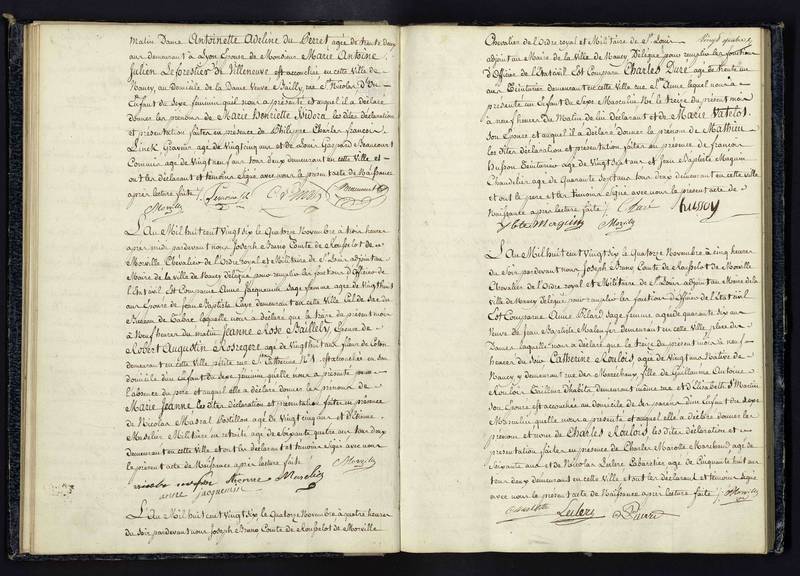 matin Dame Antoinette Adeline du Perret agée de trente deux
ans demeurant à Lyon Epouse de Monsieur Marie Antoine
Julien Leforestier de Villeneuve est accouchée en cette Ville de
Nancy, au domicile de la Dame Veuve Bailly, rue St Nicolas d'un
Enfant du sexe féminin quel nous a présenté et auquel il a déclaré
donner les prénoms de Marie Henriette Isidora les dites déclaration
et présentation faites en présence de Philippe Charles François
Linck Graveur agé de Vingt cinq ans et de Louis Gaspard Beaucourt
Commis agé de Vingt neuf ans tous deux demeurant en cette Ville et
ont les déclarant et témoins signé avec nous le présent acte de Naissance
après lecture faite
Morville
L'An Mil huit cent Vingt Six le Quatorze Novembre à trois heures
après midi pardevant nous Joseph Bruno Comte de Rousselot de
Morville Chevalier de l'Ordre royal et Militaire de St Louis adjoint au
Maire de la ville de Nancy Délégué pour remplir les fonctions d'Officier de
l'Etat Civil Est Comparue Anne Jacquemin Sage femme agée de Vingt huit
ans Epouse de Jean Baptiste demeurant en cette Ville Cul de Sac du
Bureau de Tabac laquelle nous a déclaré que le treize du présent mois
à Neuf heures du matin Jeanne Rose Baillely, Epouse de
Robert Augustin Roszegere agé de Vingt huit ans fileur de Coton
demeurant en cette Ville petite rue Ste Catherine No 1. est accouchée en son
domicile d'un Enfant du sexe féminin quelle nous a présenté pour
l'absence du père et auquel elle a déclaré donner les prénoms de
Marie Jeanne les dites déclaration et présentation faites en présence
de Nicolas Massal Postillon agé de Vingt cinq ans et d'Etienne
Muselier Militaire en retraite agé de Soixante quatre ans tous deux
demeurant en cette Ville et ont les déclarant et témoins signé avec nous
le présent acte de Naissance après lecture faite Morville
anne jacquemin
L'An Mil huit cent Vingt Six le Quatorze Novembre à quatre heures
du Soir pardevant nous Joseph Bruno Comte de Rousselot de Morville
Chevalier de l'Ordre royal et Militaire de St Louis
adjoint au Maire de la Ville de Nancy Délégué pour remplir les fonctions
d'Officier de l'Etat Civil Est Comparu Charles Duré agé de trente un
ans Teinturier demeurant en cette Ville rue Ste Anne lequel nous a
présenté un Enfant du Sexe Masculin Né le treize du présent mois
à neuf heures du Matin de lui déclarant et de Marie Vatelot
son Epouse et auquel il a déclaré donner le prénom de Mathieu
les dites déclaration et présentation faites en présence de françois
Husson Teinturier agé de Vingt sept ans et Jean Baptiste Mugum
Chandelier agé de Quarante Sept ans tous deux demeurant en cette ville
et ont le père et les témoins Signé avec nous le présent acte de
Naissance après lecture faite
Morville
L'An Mil huit cent Vingt Six le Quatorze Novembre à cinq heures
du Soir pardevant nous Joseph Bruno Comte de Rousselot de Morville
Chevalier de l'Ordre royal et Militaire de St Louis adjoint au Maire de la
Ville de Nancy Délégué pour remplir les fonctions d'Officier de l'Etat Civil
Est Comparue Anne Pelard Sage femme agée de quarante six ans
Veuve de Jean Baptiste demeurant en cette Ville place des
Dames laquelle nous a déclaré que le treize du présent mois à neuf
heures du Soir Catherine Roulois agée de Vingt ans Native de
Nancy y demeurant rue des Maréchaux fille de Guillaume Antoine
Roulois Tailleur d'habits demeurant même rue et d'Elisabeth St Martin
son Epouse est accouchée au domicile de ses parens d'un Enfant du sexe
Masculin quelle nous a présenté et auquel elle a déclaré donner les
prénom et nom de Charles Roulois les dites déclaration et
présentation faites en présence de Charles Marotte Marchand agé de
Soixante ans et de Nicolas Leclerc Cabaretier agé de Cinquante huit ans
tous deux demeurant en cette Ville et ont les déclarant et témoins signé
avec nous le présent acte de Naissance après lecture faite Morville